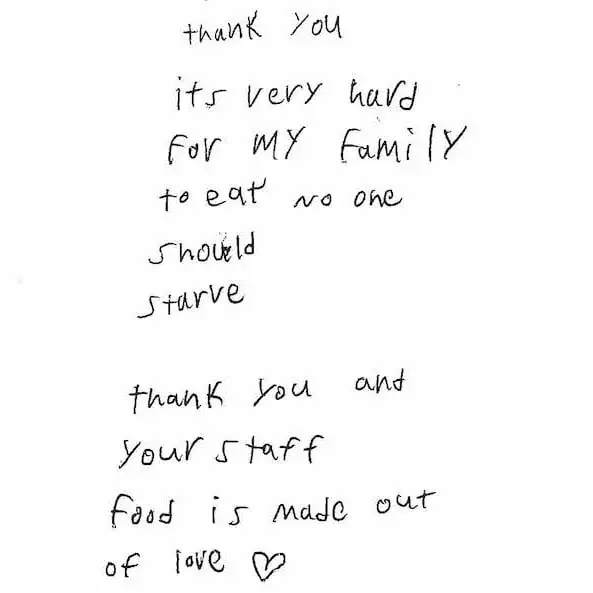 thank you
its very hard
for my family
to eat no one
should
starve
thank you and
your staff
food is made out
of love ♡